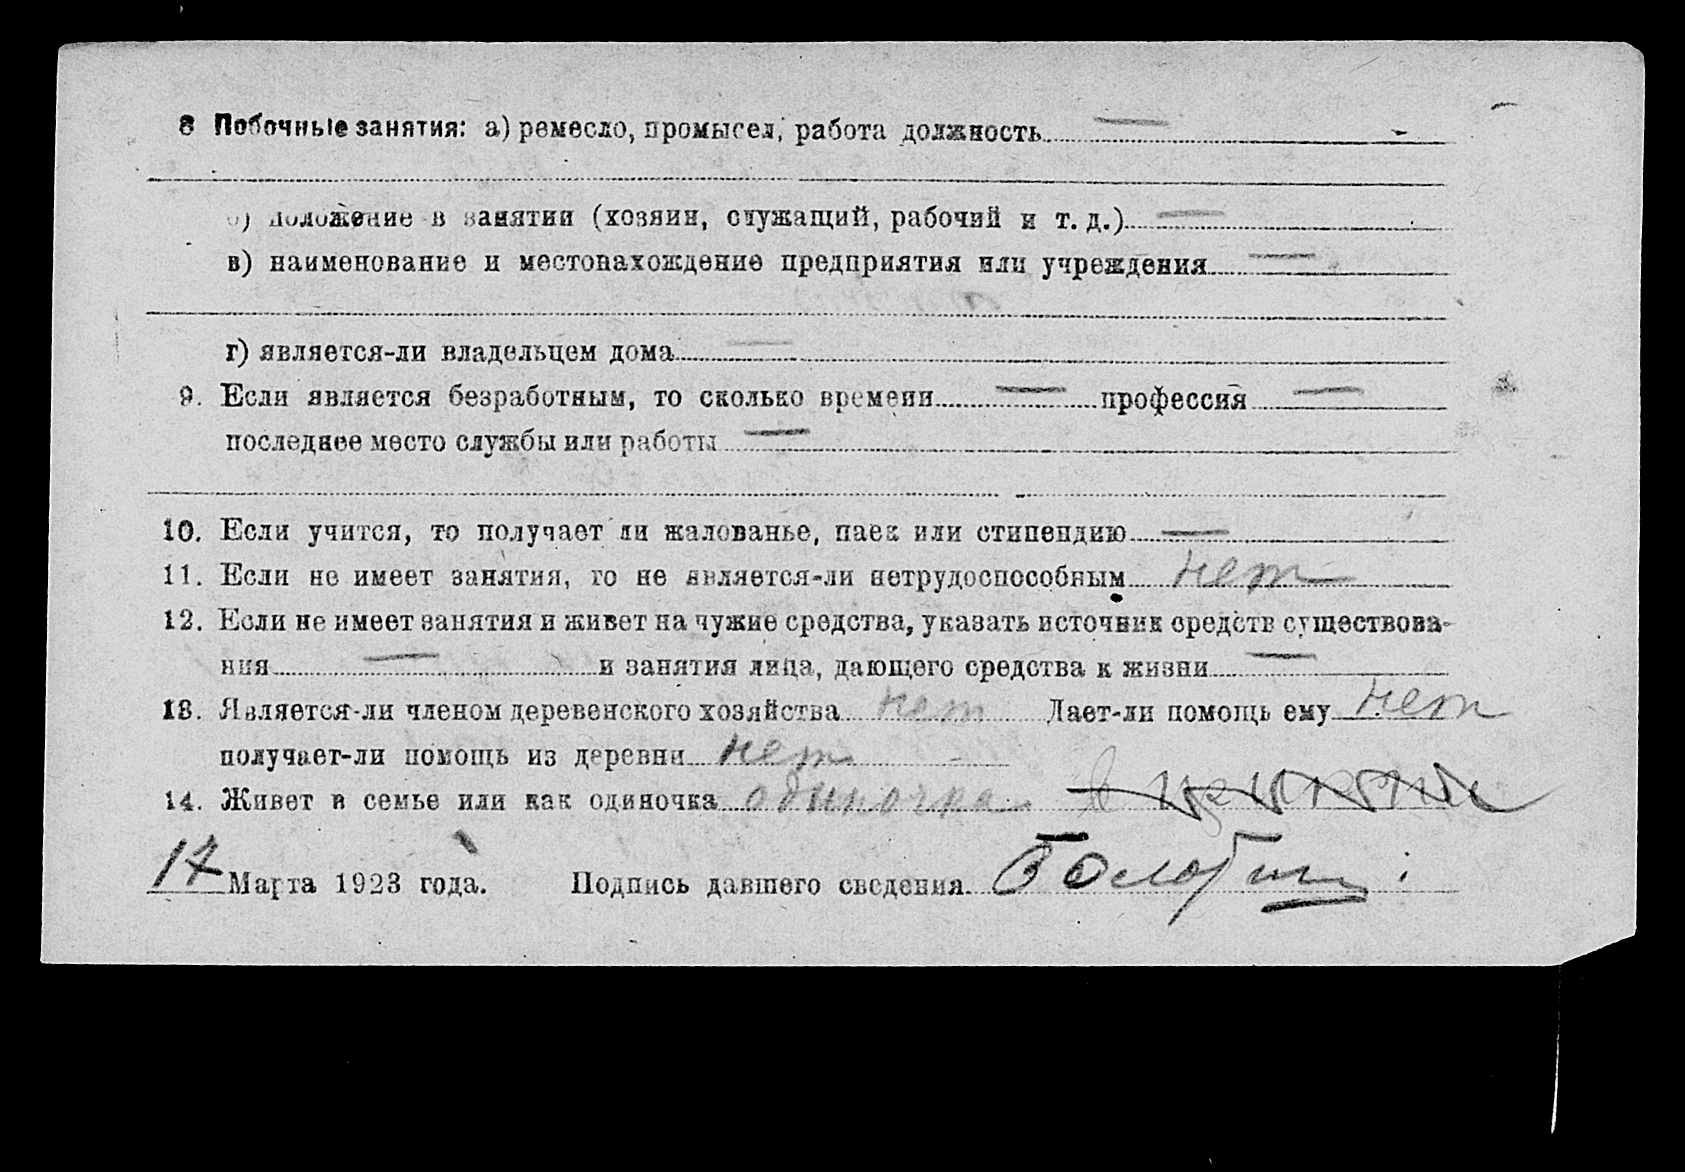 8 Побочные занятия: а) ремесло, промысел, работа должность —
б) положение в занятии (хозяин, служащий, рабочий и т. д.) —
в) наименование и местонахождение предприятия или учреждения —
г) является-ли владельцем дома —
9. Если является безработным, то сколько времени — профессия —
последнее место службы или работы —
10. Если учится, то получает ли жалованье, паек или стипендию —
11. Если не имеет занятия, то не является-ли нетрудоспособным нет
12. Если не имеет занятия и живет на чужие средства, указать источник средств существова-
ния — и занятия лица, дающего средства к жизни —
13. Является-ли членом деревенского хозяйства нет Дает-ли помощь ему нет
получает-ли помощь из деревни нет
14. Живет в семье или как одиночка одиночка
17 Марта 1923 года. Подпись давшего сведения